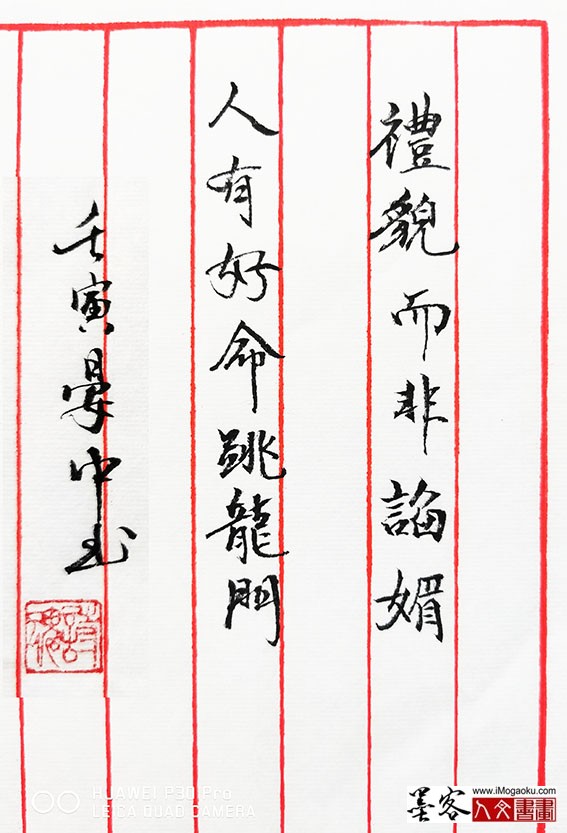 禮貌而非諂媚
人有好命跳龍門
壬寅晏中书
HUAWEI P30 Pro
LEICA QUAD CAMERA
墨客
www.iMogaoku.com
人文書畫